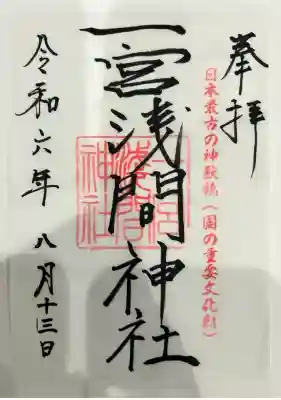 奉拝
日本最古の神獣鏡（国の重要文化財）
一宮浅間神社
令和六年八月十三日